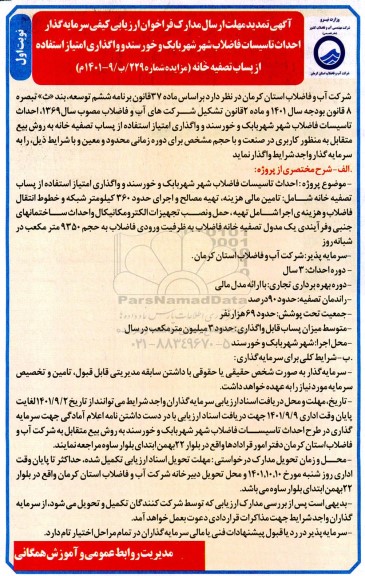 وزارت نیرو
شرکت آب و فاضلاب استان کرمان
نوبت اول
آگهی تمدید مهلت ارسال مدارک فراخوان ارزیابی کیفی سرمایه گذار
احداث تاسیسات فاضلاب شهر شهربابک و خورسند و واگذاری امتیاز استفاده
از پساب تصفیه خانه (مزایده شماره ۲۲۹/ب/۹-۱۴۰۱م)
شرکت آب و فاضلاب استان کرمان در نظر دارد براساس ماده ۳۷قانون برنامه ششم توسعه، بند «ث» تبصره
۸ قانون بودجه سال ۱۴۰۱ و ماده ۲قانون تشکیل شرکت های آب و فاضلاب مصوب سال۱۳۶۹، احداث
تاسیسات فاضلاب شهر شهربابک و خورسند و واگذاری امتیاز استفاده از پساب تصفیه خانه به روش بیع
متقابل به منظور کاربری در صنعت و با حجم مشخص برای دوره زمانی محدود و معین و با شرایط ذیل، را به
سرمایه گذار واجد شرایط واگذار نماید
.الف- شرح مختصری از پروژه:
-موضوع پروژه: احداث تاسیسات فاضلاب شهر شهربابک و خورسند و واگذاری امتیاز استفاده از پساب
تصفیه خانه شامل: تامین مالی هزینه، تهیه مصالح و اجرای حدود ۳۶۰ کیلومتر شبکه و خطوط انتقال
فاضلاب و هزینه ی اجرا شامل تهیه، حمل ونصب تجهیزات الکترومکانیکال واحداث ساختمانهای
جنبی وفرآیندی یک مدول تصفیه خانه فاضلاب به ظرفیت ورودی فاضلاب به حجم ۹۳۵۰ متر مکعب در
شبانه روز
-سرمایه پذیر: شرکت آب و فاضلاب استان کرمان.
- دوره احداث: ۳ سال
-دوره بهره برداری تجاری: با ارائه مدل مالی
-راندمان تصفیه: حدود ۹۰درصد
-جمعیت تحت پوشش: حدود ۶۹ هزار نفر
-متوسط میزان پساب قابل واگذاری: حدود ۳ میلیون متر مکعب در سال
-محل اجرا: شهر شهربابک و خورسند
.ب- شرایط کلی برای سرمایه گذاری:
-سرمایه گذار به صورت شخص حقیقی یا حقوقی با داشتن سابقه مدیریتی قابل قبول، تامین و تخصیص
سرمایه مورد نیاز را به عهده خواهد داشت.
-تاریخ، مهلت و محل دریافت اسناد ارزیابی سرمایه گذاران واجد شرایط می توانند از تاریخ ۱۴۰۱/۹/۲ لغایت
پایان وقت اداری ۱۴۰۱/۹/۹ جهت دریافت اسناد ارزیابی با در دست داشتن نامه اعلام آمادگی جهت سرمایه
گذاری در طرح احداث تاسیسات فاضلاب شهر شهربابک و خورسند به روش بیع متقابل به شرکت آب و
فاضلاب استان کرمان دفتر امور قراردادها واقع در بلوار ۲۲بهمن ابتدای بلوار ساوه مراجعه نمایند.
-محل و زمان تحویل مدارک درخواستی: مهلت تحویل اسناد ارزیابی تکمیل شده، حداکثر تا پایان وقت
اداری روز شنبه مورخ ۱۴۰۱.۱۰.۱۰ و محل تحویل دبیرخانه شرکت آب و فاضلاب استان کرمان واقع در بلوار
۲۲بهمن ابتدای بلوار ساوه می باشد.
-بدیهی است پس از بررسی مدارک ارزیابی که توسط شرکت کنندگان تکمیل و تحویل می شود، از سرمایه
گذاران واجد شرایط جهت مذاکرات قراردادی دعوت بعمل خواهد آمد.
-سرمایه پذیر در رد یا قبول پیشنهادات فنی یا مالی سرمایه گذاران در تمام مراحل اختیار تام دارد.
مدیریت روابط عمومی و آموزش همگانی
ParsNamadData
۰۲۱-۸۸۳۴۹۶۷۰-۵